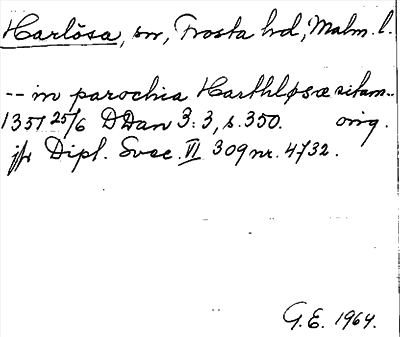 Harlösa, sn, Frosta hd, Malm. l.
-- in parochia Harthløsæ sitam..
1351 25/6 DDan 3:3, s. 350. orig.
jfr Dipl. Svec. VI 309 nr. 4732.
G.E. 1964.